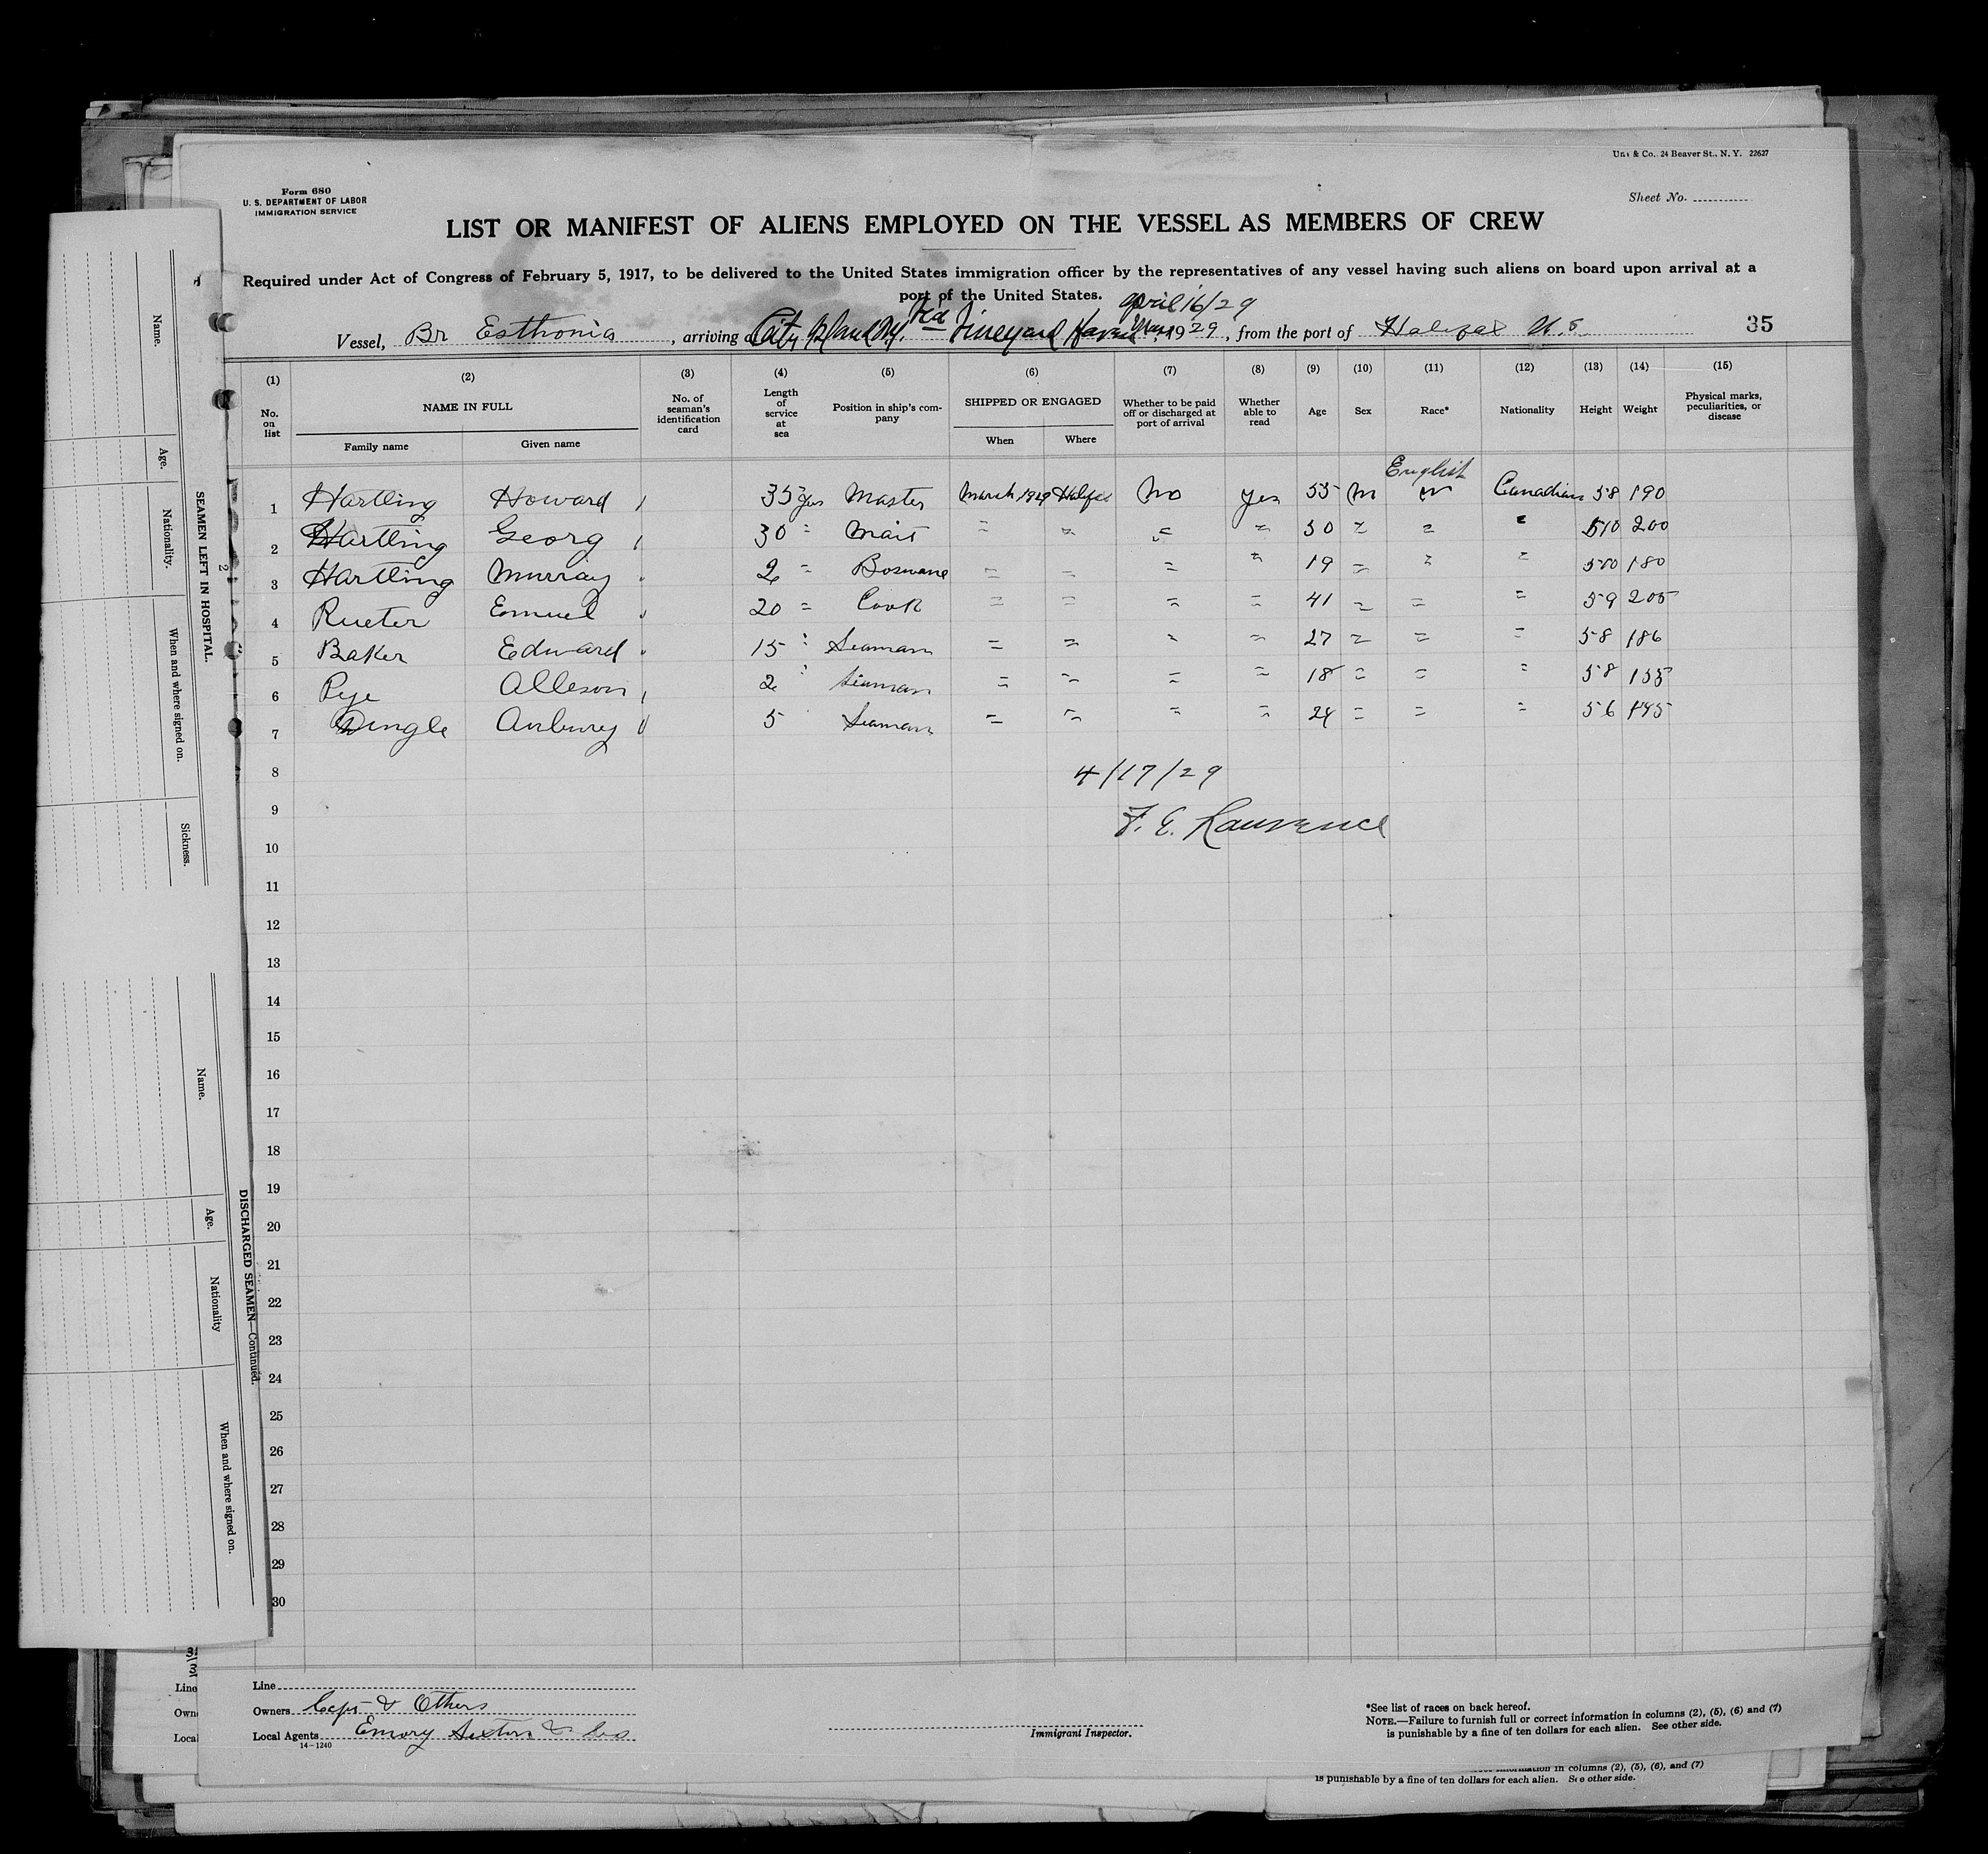 Uni & Co., 24 Beaver St., N. Y. 22627
Form 680
U. S. DEPARTMENT OF LABOR
IMMIGRATION SERVICE
Sheet No.
LIST OR MANIFEST OF ALIENS EMPLOYED ON THE VESSEL AS MEMBERS OF CREW
Required under Act of Congress of February 5, 1917, to be delivered to the United States immigration officer by the representatives of any vessel having such aliens on board upon arrival at a
port of the United States.
April 16/29
Vessel, Br Esthonia, arriving City Island N.Y. Vineyard Haven 1929, from the port of Halifax N.S. 35
(1) (2) (3) (4) (5) (6) (7) (8) (9) (10) (11) (12) (13) (14) (15)
No. on list NAME IN FULL Family name Given name No. of seaman's identification card Length of service at sea Position in ship's company SHIPPED OR ENGAGED When Where Whether to be paid off or discharged at port of arrival Whether able to read Age Sex Race* Nationality Height Weight Physical marks, peculiarities, or disease
English
1 Hartling Howard 35 yrs Master March 1929 Halifax No Yes 55 M " Canadian 58 190
2 Hartling Georg 30 " Mait " " " " 50 " " " 510 200
3 Hartling Murray 2 " Boswane " " " " 19 " " " 510 180
4 Rueter Emuel 20 " Cook " " " " 41 " " " 59 205
5 Baker Edward 15 " Seaman " " " " 27 " " " 58 186
6 Pye Alleson 2 " Seaman " " " " 18 " " " 58 155
7 Dingle Anbury 5 Seaman " " " " 24 " " " 56 145
8
4/17/29
9
F. E. Lawrence
10
11
12
13
14
15
16
17
18
19
20
21
22
23
24
25
26
27
28
29
30
Line
Owners Capt & Others
Local Agents Emory Sexton & Co
14-1240
Immigrant Inspector.
*See list of races on back hereof.
NOTE.—Failure to furnish full or correct information in columns (2), (5), (6) and (7)
is punishable by a fine of ten dollars for each alien. See other side.
in columns (2), (5), (6), and (7)
is punishable by a fine of ten dollars for each alien. See other side.
SEAMEN LEFT IN HOSPITAL.
2
Name.
Age.
Nationality.
When and where signed on.
Sickness.
DISCHARGED SEAMEN—Continued.
Name.
Age.
Nationality
When and where signed on.
Line
Own
Local